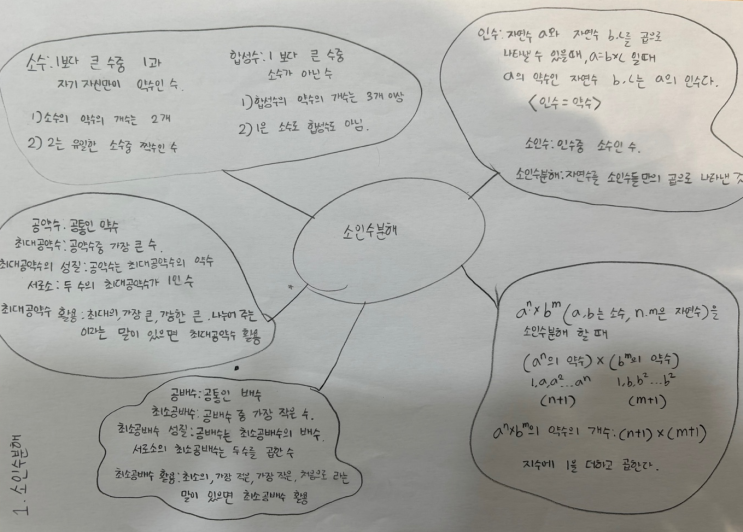 소수: 1보다 큰 수중 1과
자기 자신만이 약수인 수.
1) 소수의 약수의 개수는 2개
2) 2는 유일한 소수중 짝수인 수
합성수: 1 보다 큰 수중
소수가 아닌 수
1) 합성수의 약수의 개수는 3개 이상
2) 1은 소수도 합성수도 아님.
인수: 자연수 a와 자연수 b, c를 곱으로
나타낼 수 있을때, a=b×c 일때
a의 약수인 자연수 b, c는 a의 인수다.
<인수=약수>
소인수: 인수중 소수인 수.
소인수분해: 자연수를 소인수들만의 곱으로 나타낸 것
소인수분해
공약수: 공통인 약수
최대공약수: 공약수중 가장 큰 수.
최대공약수의 성질: 공약수는 최대공약수의 약수
서로소: 두 수의 최대공약수가 1인 수
최대공약수 활용: 최대의, 가장 큰, 가능한 큰. 나누어 주는
이라는 말이 있으면 최대공약수 활용
aⁿ×bᵐ (a,b는 소수, n.m은 자연수)을
소인수분해 할 때
(aⁿ의 약수) × (bᵐ의 약수)
1,a,a²...aⁿ 1,b,b²...b²
(n+1) (m+1)
aⁿ×bᵐ의 약수의 개수: (n+1)×(m+1)
지수에 1을 더하고 곱한다.
공배수: 공통인 배수
최소공배수: 공배수 중 가장 작은 수.
최소공배수 성질: 공배수는 최소공배수의 배수.
서로소의 최소공배수는 두수를 곱한 수
최소공배수 활용: 최소의, 가장 적은, 가장 작은, 처음으로 라는
말이 있으면 최소공배수 활용
1. 소인수분해